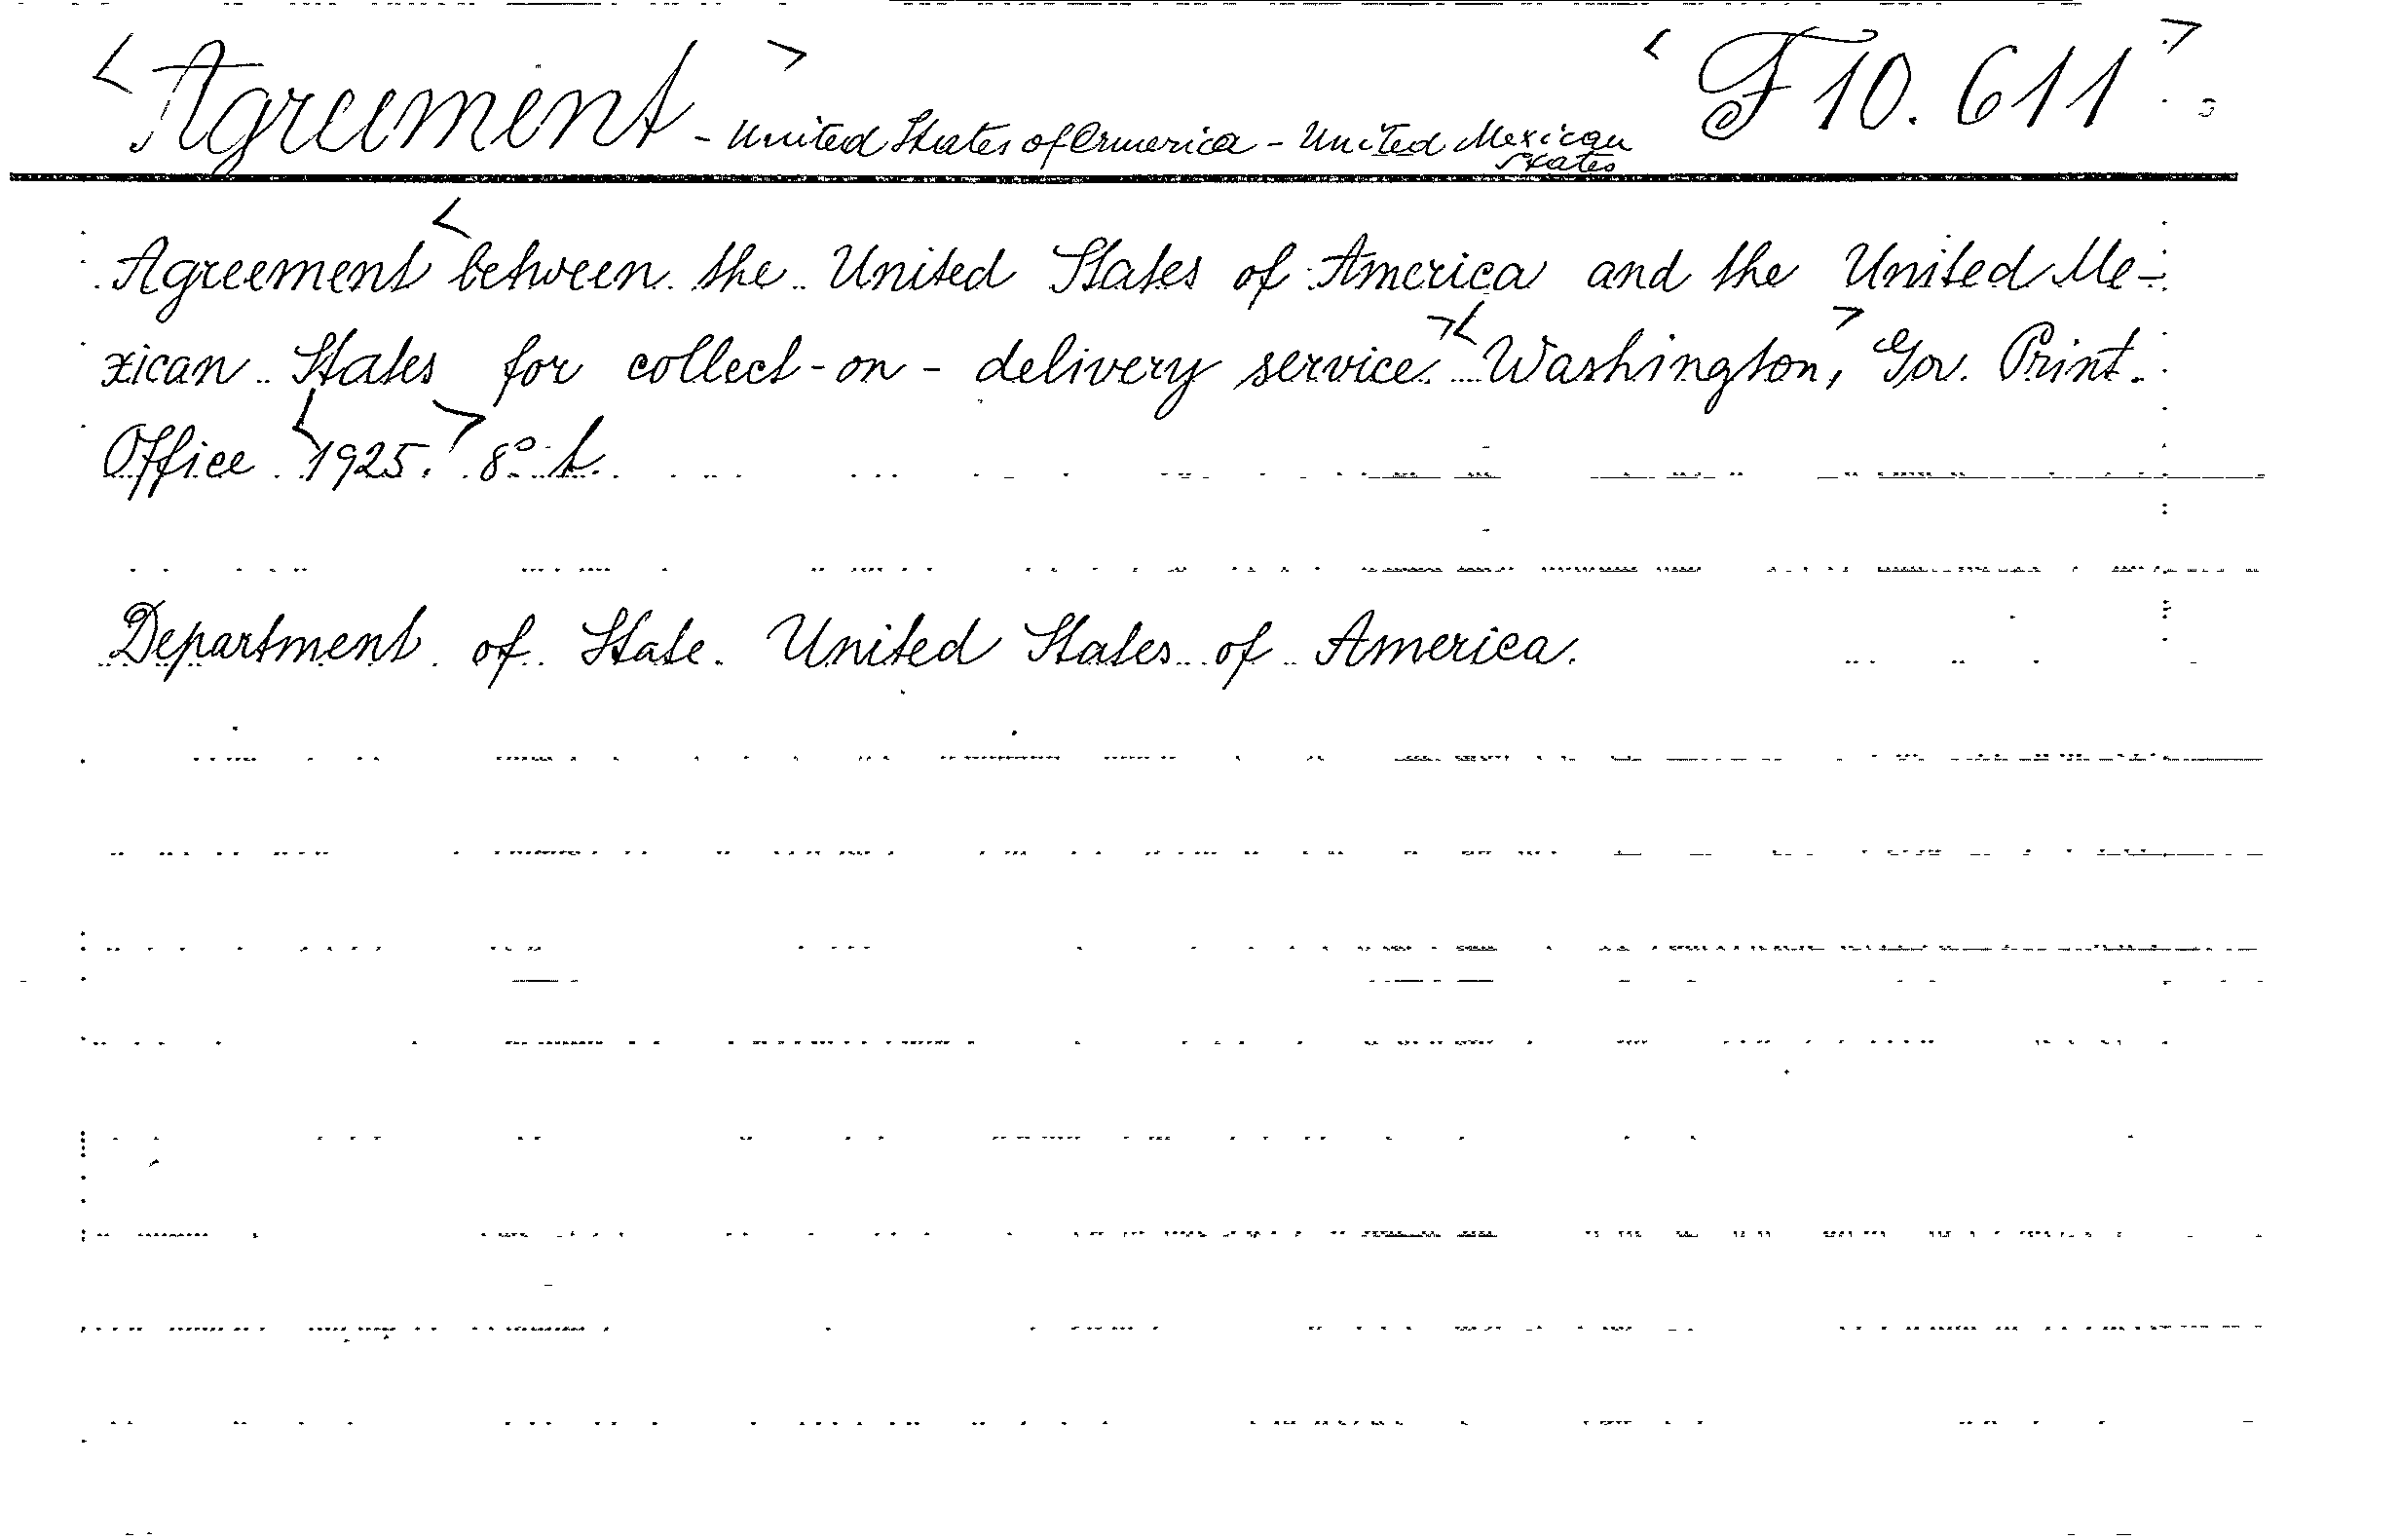 <Agreement> - United States of America - United Mexican States <F 10.611>
Agreement <between the United States of America and the United Me-
xican States for collect-on-delivery service.> <Washington,> Gov. Print.
Office <1925.> 8°
Department of State. United States of America.